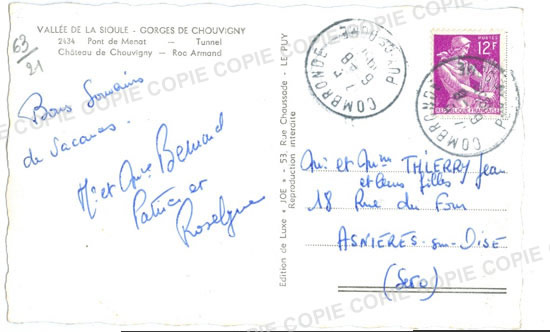 VALLÉE DE LA SIOULE - GORGES DE CHOUVIGNY
2434 Pont de Menat — Tunnel
Château de Chouvigny — Roc Armand
63/21
Bons Souvenirs
de Vacances.
Mr et Mme Bernard
Patrice et
Roselyne
Edition de Luxe • JOE • 53, Rue Chaussade - LE PUY
Reproduction interdite
COMBRONDE
PUY-DE-DOME
POSTES
12F
REPUBLIQUE FRANÇAISE
COMBRONDE
Mr et Mme THIERRY Jean
et leurs filles
18 Rue du Four
ASNIERES-sur-OISE
COPIE COPIE COPIE COPIE COPIE COPIE